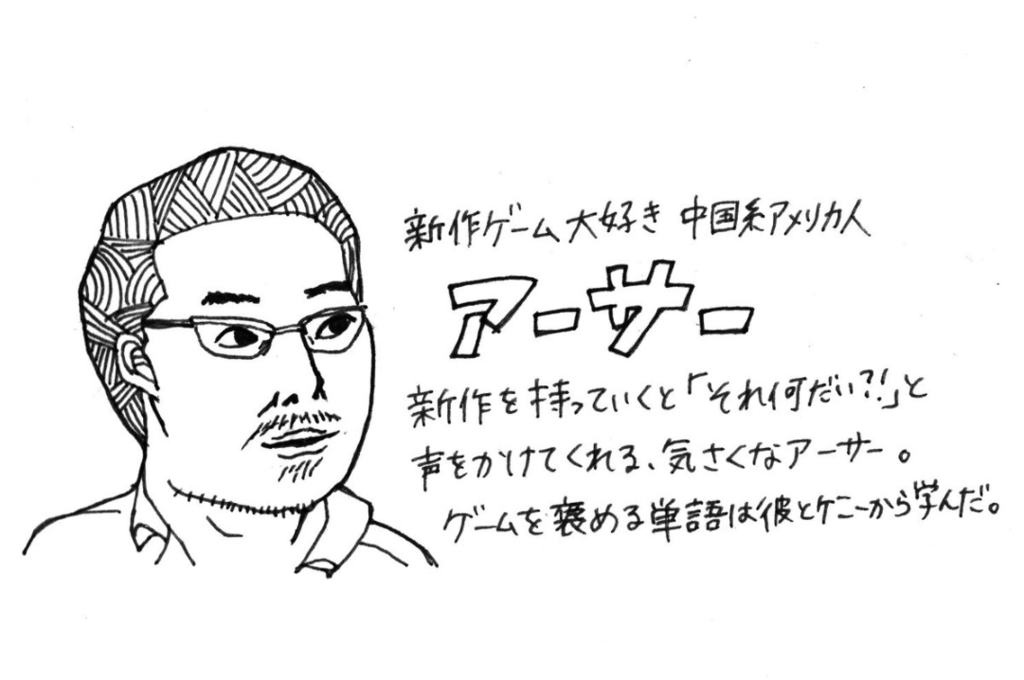 新作ゲーム大好き 中国系アメリカ人
アーサー
新作を持っていくと「それ何だい?!」と
声をかけてくれる、気さくなアーサー。
ゲームを褒める単語は彼とケニーから学んだ。